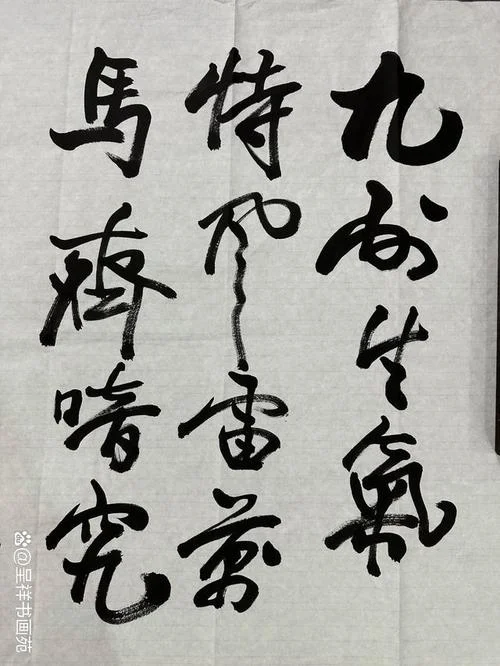 九州生氣
恃風雷萬
馬齊喑究
@呈祥书画苑